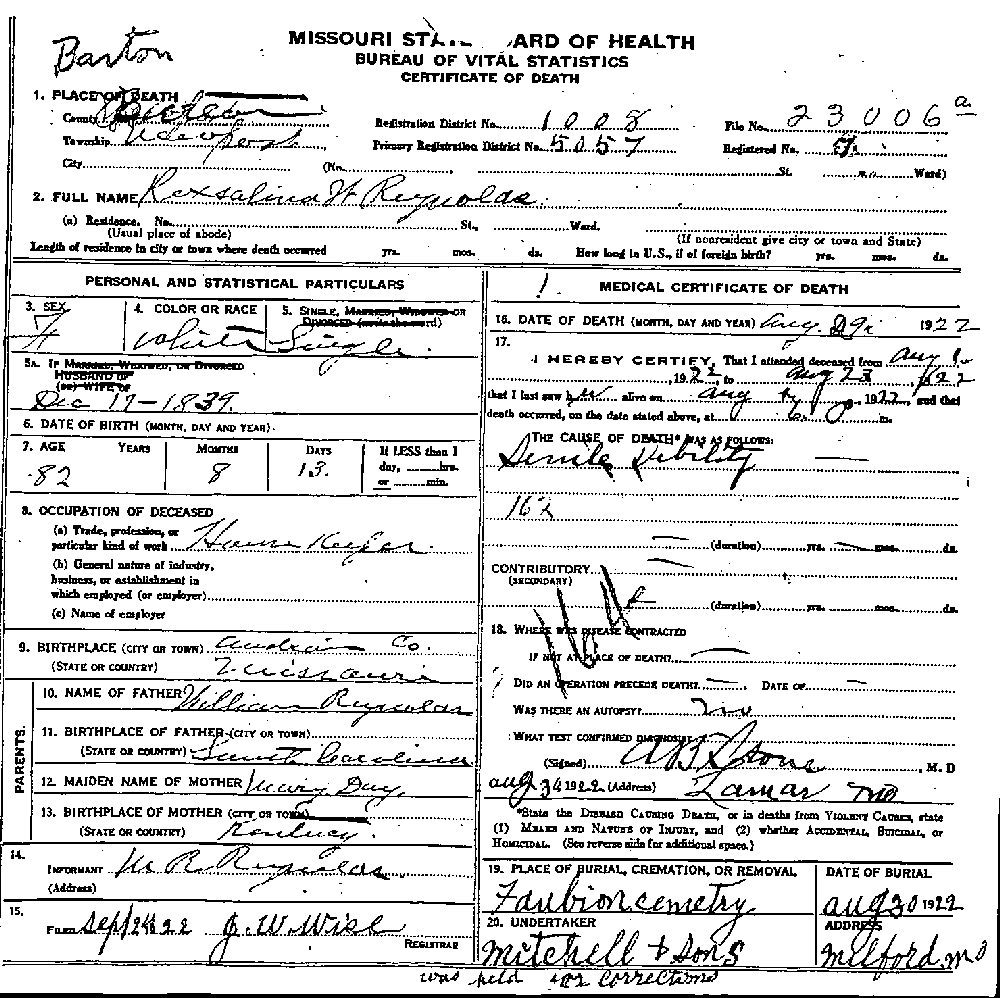 Barton
MISSOURI STA ARD OF HEALTH
BUREAU OF VITAL STATISTICS
CERTIFICATE OF DEATH
1. PLACE OF DEATH
County
Township Newport
City (No. St. Ward)
Registration District No. 1008
Primary Registration District No. 5057
File No. 23006 a
Registered No.
2. FULL NAME Rexsalina W Reynolds
(a) Residence. No. St., Ward.
(Usual place of abode) (If nonresident give city or town and State)
Length of residence in city or town where death occurred yrs. mos. ds. How long in U.S., if of foreign birth? yrs. mos. ds.
PERSONAL AND STATISTICAL PARTICULARS
3. SEX 4. COLOR OR RACE 5. SINGLE, MARRIED, WIDOWED OR
DIVORCED (write the word)
F White Single
5A. IF MARRIED, WIDOWED, OR DIVORCED
HUSBAND OF
(OR) WIFE OF
Dec 17-1839.
6. DATE OF BIRTH (MONTH, DAY AND YEAR)
7. AGE YEARS MONTHS DAYS If LESS than 1
day, hrs.
or min.
82 8 13
8. OCCUPATION OF DECEASED
(a) Trade, profession, or
particular kind of work House Keeper
(b) General nature of industry,
business, or establishment in
which employed (or employer)
(c) Name of employer
9. BIRTHPLACE (CITY OR TOWN) Audrain Co.
(STATE OR COUNTRY) Missouri
PARENTS.
10. NAME OF FATHER William Reynolds
11. BIRTHPLACE OF FATHER (CITY OR TOWN)
(STATE OR COUNTRY) South Carolina
12. MAIDEN NAME OF MOTHER Mary Day.
13. BIRTHPLACE OF MOTHER (CITY OR TOWN)
(STATE OR COUNTRY) Kentucy.
14.
INFORMANT M R Reynolds
(Address)
15.
FILED Sept 2 22 J. W. Wise
REGISTRAR
MEDICAL CERTIFICATE OF DEATH
16. DATE OF DEATH (MONTH, DAY AND YEAR) Aug. 29 1922
17.
I HEREBY CERTIFY, That I attended deceased from Aug 1
, 1922, to Aug 23 1922
that I last saw h alive on Aug , 1922, and that
death occurred, on the date stated above, at m.
THE CAUSE OF DEATH* WAS AS FOLLOWS:
Senile Debility
162
(duration) yrs. mos. ds.
CONTRIBUTORY
(SECONDARY)
(duration) yrs. mos. ds.
18. WHERE WAS DISEASE CONTRACTED
IF NOT AT PLACE OF DEATH?
DID AN OPERATION PRECEDE DEATH? DATE OF
WAS THERE AN AUTOPSY? no
WHAT TEST CONFIRMED DIAGNOSIS?
(Signed) , M. D
Aug 1922 (Address) Lamar Mo
*State the DISEASE CAUSING DEATH, or in deaths from VIOLENT CAUSES, state
(1) MEANS AND NATURE OF INJURY, and (2) whether ACCIDENTAL, SUICIDAL, or
HOMICIDAL. (See reverse side for additional space.)
19. PLACE OF BURIAL, CREMATION, OR REMOVAL DATE OF BURIAL
Faubion cemetry Aug 30 1922
20. UNDERTAKER ADDRESS
Mitchell & Sons Milford. Mo
was held for corrections